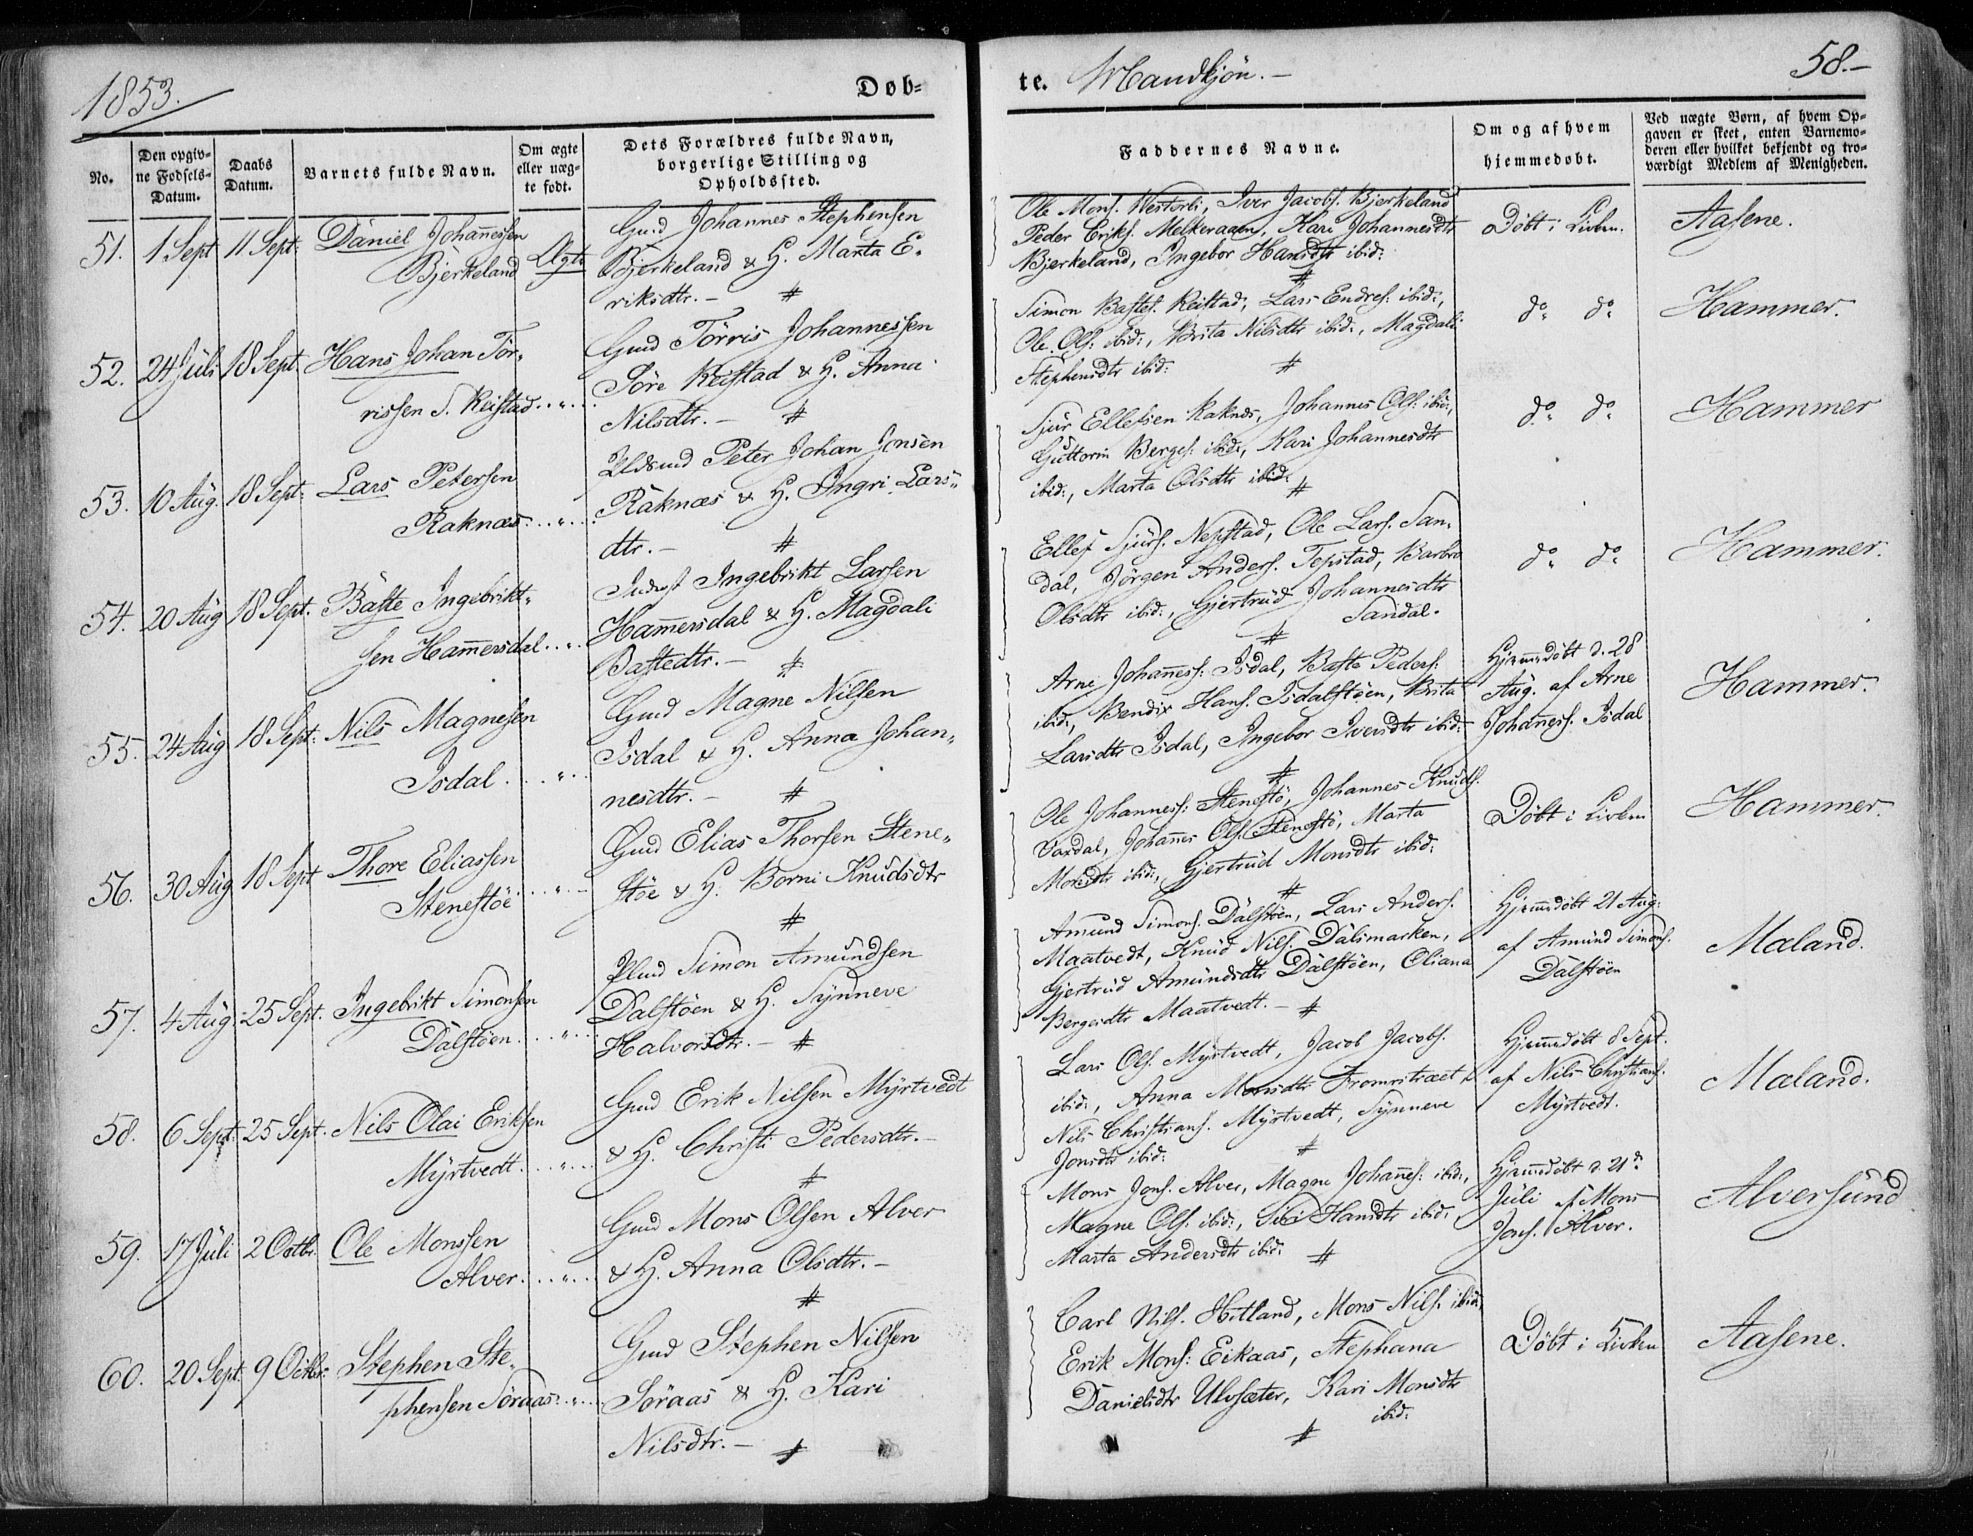 1853.
Døb-
te. Mandkjøn.
58.
No.
Den opgiv-
ne Fødsels-
Datum.
Daabs
Datum.
Barnets fulde Navn.
Om ægte
eller uæg-
te født.
Dets Forældres fulde Navn,
borgerlige Stilling og
Opholdssted.
Faddernes Navne.
Om og af hvem
hjemmedøbt.
Ved uægte Børn, af hvem Op-
gaven er skeet, enten Barnemo-
deren eller hvilket bekjendt og tro-
værdigt Medlem af Menigheden.
51. 1 Sept 11 Sept. Daniel Johannessen
Bjerkeland Ægte
Gmd Johannes Stephensen
Bjerkeland & H. Marta E-
riksdtr. – #
Ole Mons. Westorbi, Iver Jacobs. Bjerkeland
Peder Eriks. Melkeraaen, Kari Johannesdtr
Bjerkeland, Ingebor Hansdtr ibid:
#
Døbt i Kirken.
Aasene.
52. 24 Juli 18 Sept. Hans Johan Tør-
rissen S. Reistad
Gmd Tørris Johannessen
Søre Reistad & H. Anna
Nilsdtr. – #
Simon Bastes. Reistad, Lars Endres. ibid:,
Ole Ols. ibid:, Brita Nilsdtr ibid:, Magdali
Stephensdtr ibid: #
do do
Hammer.
53. 10 Aug. 18 Sept. Lars Petersen
Raknæs
Peter Johan Jensen
Raknæs & H. Ingri Lars-
dtr. – #
Sjur Ellefsen Raknæs, Johannes Ols. ibid:,
Guttorm Berges. ibid:, Kari Johannesdtr
ibid:, Marta Olsdtr ibid:
#
do do
Hammer
54. 20 Aug 18 Sept. Baste Ingebrikt-
sen Hamersdal
Inderst Ingebrikt Larsen
Hamersdal & H. Magdali
Bastedtr. – #
Ellef Sjurs. Nepstad, Ole Lars. San-
dal, Jørgen Anders. Tepstad, Barbro
Olsdtr ibid:, Gjertrud Johannesdtr
Sandal.
#
do do
Hammer.
55. 24 Aug 18 Sept. Nils Magnesen
Isdal
Gmd Magne Nilsen
Isdal & H. Anna Johan-
nesdtr. – #
Arne Johaness: Isdal, Baste Peders:
ibid:, Bendix Hans. Isdalstøen, Brita
Larsdtr Isdal, Ingebor Iversdtr ibid:
#
Hjemmedøbt d. 28
Aug. af Arne
Johaness. Isdal
Hammer.
56. 30 Aug 18 Sept Thore Eliassen
Stenestøe
Gmd Elias Thorsen Stene-
støe & H. Borni Knudsdtr
#
Ole Johanness: Stenestø, Johannes Knuds.
Vardal, Johanes Ols. Stenestø, Marta
Monsdtr ibid:, Gjertrud Monsdtr ibid:
#
Døbt i Kirken
Hammer.
57. 4 Aug. 25 Sept. Ingebrikt Simonsen
Dalstøen
Simon Amundsen
Dalstøen & H. Synneve
Halvorsdtr. – #
Amund Simons. Dalstøen, Lars Anders.
Maatvedt, Knud Nils. Dalsmarken,
Gjertrud Amundsdtr Dalstøen, Oliana
Bergesdtr Maatvedt. – #
Hjemmedøbt 21 Aug:
af Amund Simons.
Dalstøen
Maland.
58. 6 Sept. 25 Sept. Nils Olai Eriksen
Myrtvedt
Gmd Erik Nilsen Myrtvedt
& H. Christi Pedersdtr. –
#
Lars Ols. Myrtvedt, Jacob Jacobs.
ibid:, Anna Monsdtr Fromrstræet,
Nils Christians. Myrtvedt, Synneve
Jonsdtr ibid: #
Hjemmedøbt 8 Sept.
af Nils Christians.
Myrtvedt.
Maland.
59. 17 Juli 2 Octbr. Ole Monssen
Alver
Gmd Mons Olsen Alver
& H. Anna Olsdtr. –
#
Mons Jons. Alver, Magne Johanes: ibid:,
Magne Ols. ibid:, Siri Hansdtr ibid:
Marta Andersdtr ibid: #
Hjemmedøbt d. 21de
Juli af Mons
Jons. Alver.
Alversund
60. 20 Sept. 9 Octbr: Stephen Ste-
phensen Søraas
Gmd Stephen Nilsen
Søraas & H. Kari
Nilsdtr. – #
Carl Nils. Hitland, Mons Nils. ibid:
Erik Mons: Eikaas, Stephana
Danielsdtr Ulvsæter, Kari Monsdtr
ibid:
#
Døbt i Kirken
Aasene.